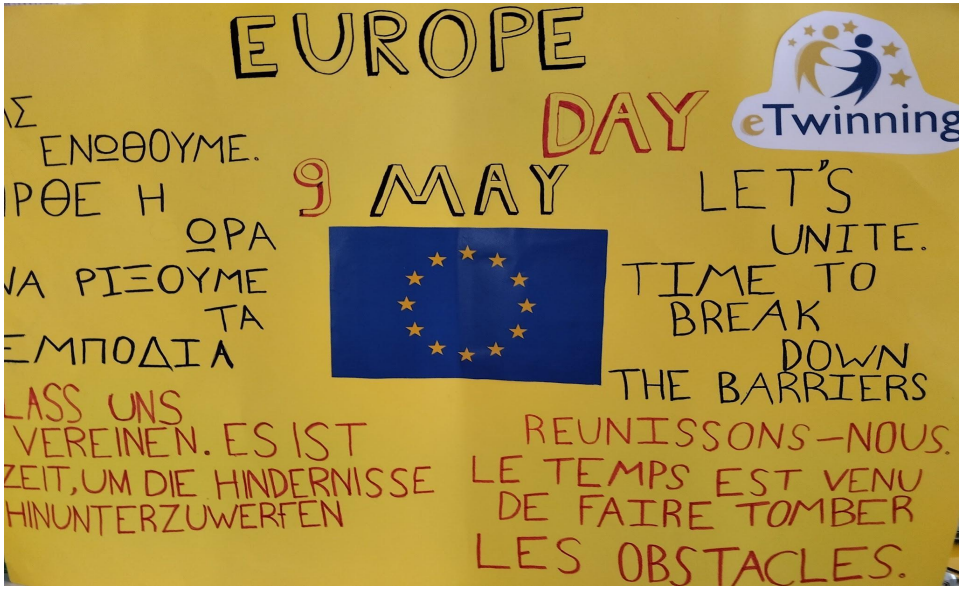 EUROPE
DAY
9 MAY
eTwinning
ΑΣ
ΕΝΩΘΟΥΜΕ.
ΗΡΘΕ Η
ΩΡΑ
ΝΑ ΡΙΞΟΥΜΕ
ΤΑ
ΕΜΠΟΔΙΑ
LET'S
UNITE.
TIME TO
BREAK
DOWN
THE BARRIERS
LASS UNS
VEREINEN. ES IST
ZEIT, UM DIE HINDERNISSE
HINUNTERZUWERFEN
REUNISSONS-NOUS.
LE TEMPS EST VENU
DE FAIRE TOMBER
LES OBSTACLES.